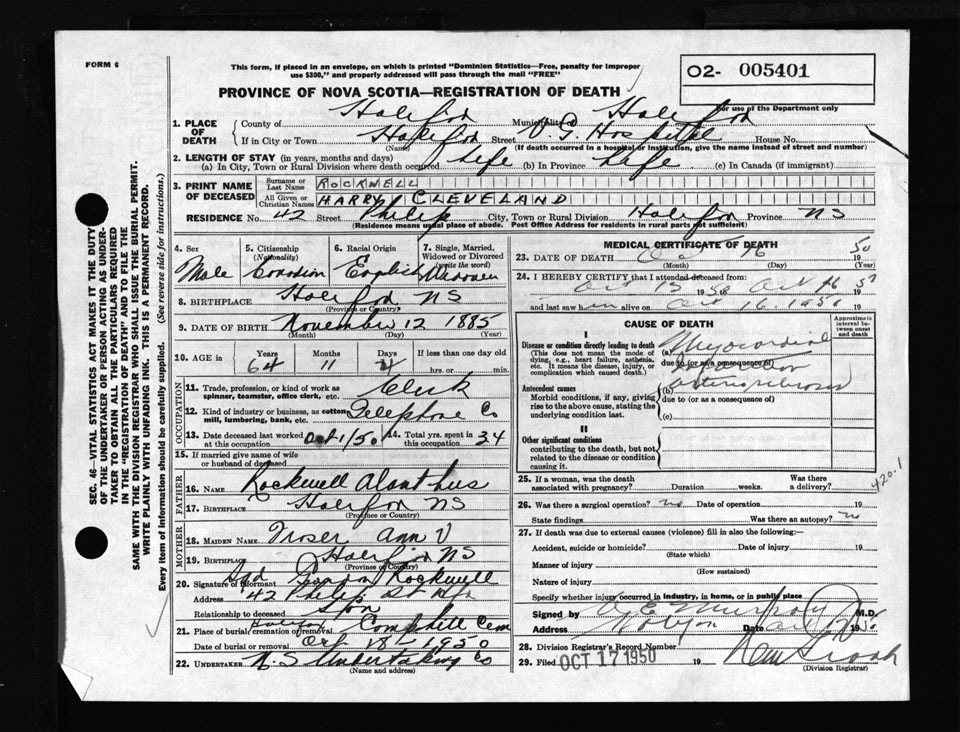 FORM 6
This form, if placed in an envelope, on which is printed "Dominion Statistics—Free, penalty for improper
use $300," and properly addressed will pass through the mail "FREE"
PROVINCE OF NOVA SCOTIA—REGISTRATION OF DEATH
O2- 005401
For use of the Department only
SEC. 46—VITAL STATISTICS ACT MAKES IT THE DUTY
OF THE UNDERTAKER OR PERSON ACTING AS UNDER-
TAKER TO OBTAIN ALL THE PARTICULARS REQUIRED
IN THE "REGISTRATION OF DEATH" AND TO FILE THE
SAME WITH THE DIVISION REGISTRAR WHO SHALL ISSUE THE BURIAL PERMIT.
WRITE PLAINLY WITH UNFADING INK. THIS IS A PERMANENT RECORD.
Every item of information should be carefully supplied. (See reverse side for instructions.)
1. PLACE OF DEATH
County of Halifax Municipality Halifax
If in City or Town Halifax Street V. G. Hospital House No.
(Name) (If death occurred in a hospital or institution, give the name instead of street and number)
2. LENGTH OF STAY (in years, months and days)
(a) In City, Town or Rural Division where death occurred Life (b) In Province Life (c) In Canada (if immigrant)
3. PRINT NAME OF DECEASED
Surname or Last Name ROCKWELL
All Given or Christian Names HARRY CLEVELAND
RESIDENCE No. 42 Street Philip City, Town or Rural Division Halifax Province NS
(Residence means usual place of abode. Post Office Address for residents in rural parts not sufficient)
4. Sex Male
5. Citizenship (Nationality) Canadian
6. Racial Origin English
7. Single, Married, Widowed or Divorced (write the word)
8. BIRTHPLACE Halifax NS
(Province or Country)
9. DATE OF BIRTH November 12 1885
(Month) (Day) (Year)
10. AGE in Years 64 Months 11 Days 4 If less than one day old hrs. or min.
OCCUPATION
11. Trade, profession, or kind of work as spinner, teamster, office clerk, etc. Clerk
12. Kind of industry or business, as cotton mill, lumbering, bank, etc. Telephone Co
13. Date deceased last worked at this occupation Oct 1/50 14. Total yrs. spent in this occupation 34
15. If married give name of wife or husband of deceased
FATHER
16. NAME Rockwell
17. BIRTHPLACE Halifax NS
(Province or Country)
MOTHER
18. MAIDEN NAME Ann V
19. BIRTHPLACE Halifax NS
(Province or Country)
20. Signature of informant Sgd Gordon Rockwell
Address 42 Philip St Hfx
Relationship to deceased Son
21. Place of burial, cremation or removal Halifax Camphill Cem
Date of burial or removal Oct 18 1950
22. UNDERTAKER N. S Undertaking Co
(Name and address)
MEDICAL CERTIFICATE OF DEATH
23. DATE OF DEATH Oct 16 1950
(Month) (Day) (Year)
24. I HEREBY CERTIFY that I attended deceased from
Oct 15 1950 to Oct 16 50
and last saw him alive on Oct 16, 1950
CAUSE OF DEATH
Approximate interval between onset and death
I
Disease or condition directly leading to death
(This does not mean the mode of dying, e.g., heart failure, asthenia, etc. It means the disease, injury, or complication which caused death.)
(a) Myocardial
due to (or as a consequence of)
Antecedent causes
Morbid conditions, if any, giving rise to the above cause, stating the underlying condition last.
(b) arteriosclerosis
due to (or as a consequence of)
(c)
II
Other significant conditions
Contributing to the death, but not related to the disease or condition causing it.
420.1
25. If a woman, was the death associated with pregnancy? Duration weeks. Was there a delivery?
26. Was there a surgical operation? no Date of operation 19
State findings Was there an autopsy? no
27. If death was due to external causes (violence) fill in also the following:—
Accident, suicide or homicide? Date of injury 19
(State which)
Manner of injury
(How sustained)
Nature of injury
Specify whether injury occurred in industry, in home, or in public place
Signed by E Murphy M.D.
Address Date Oct 17 1950
28. Division Registrar's Record Number
29. Filed OCT 17 1950
(Division Registrar)